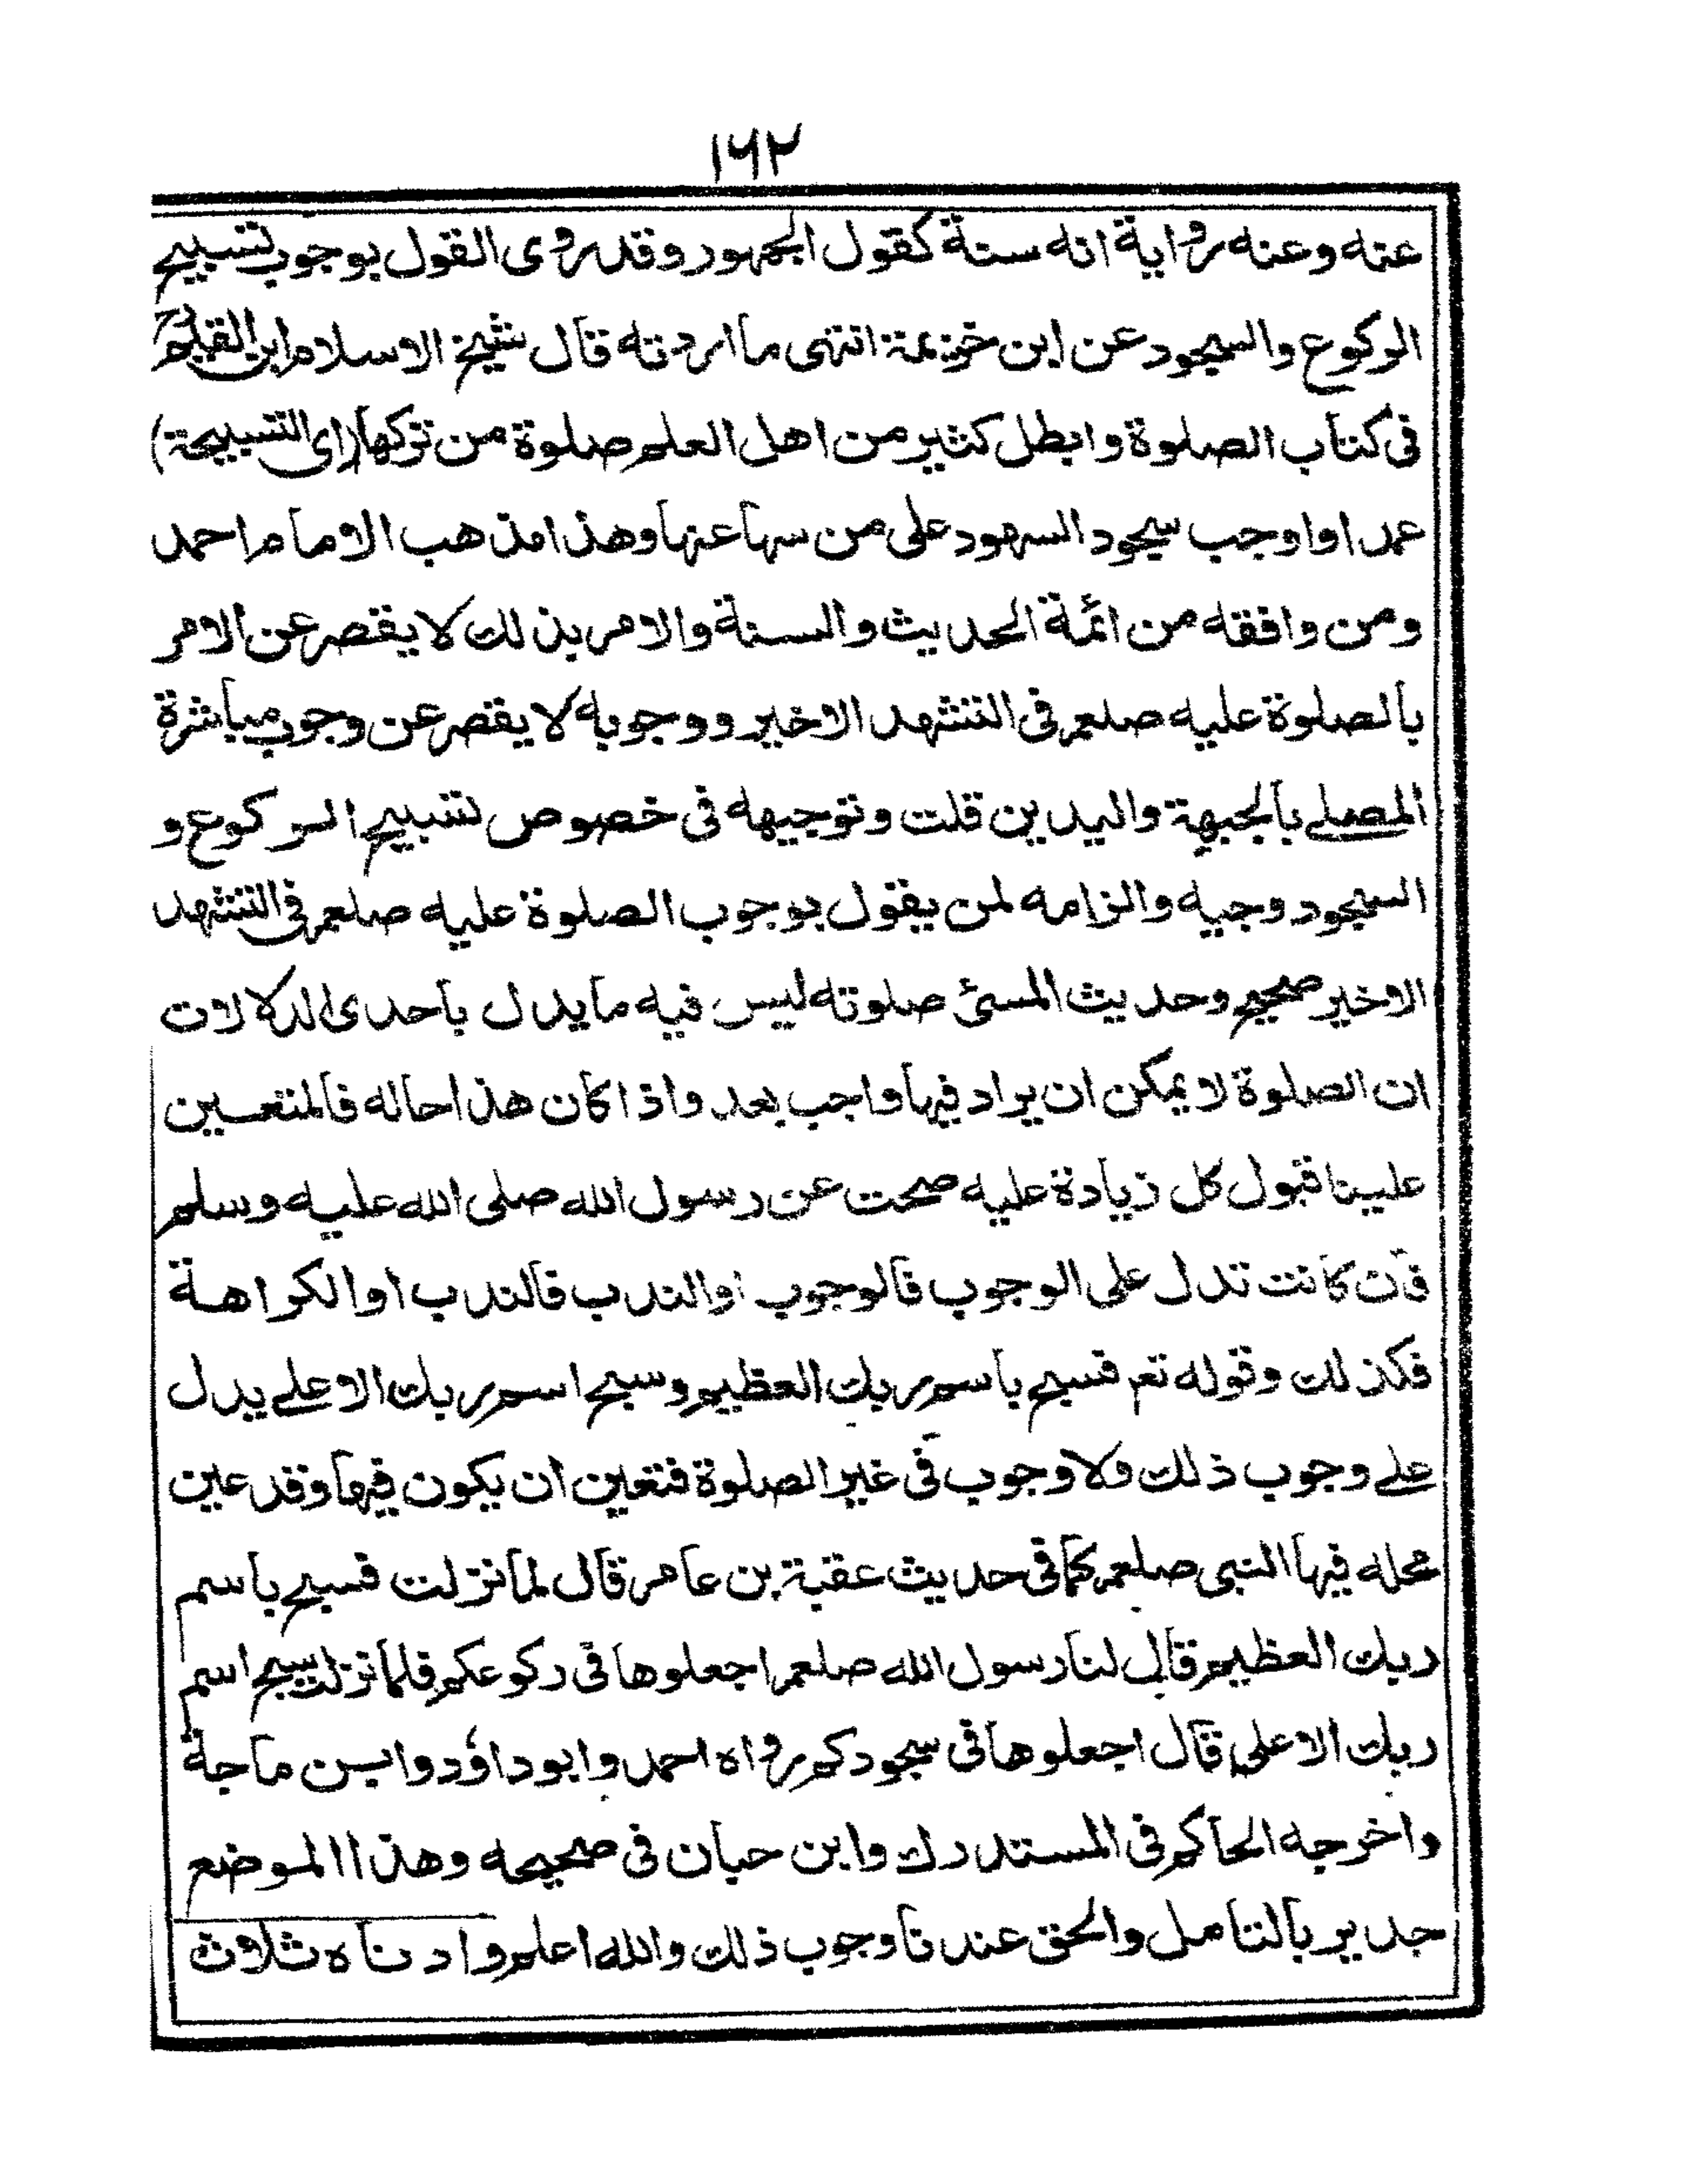 ١٦٢
عنه وعنه رواية انه سنة كقول الجمهور وقد روى القول بوجوب تسبيح
الركوع والسجود عن ابن خزيمة انتهى ما اردته قال شيخ الاسلام ابن القيم رح
فى كتاب الصلوة وابطل كثير من اهل العلم صلوة من تركها (اى التسبيحة)
عمدا واوجب سجود السهود على من سها عنها وهذا مذهب الامام احمد
ومن وافقه من ائمة الحديث والسنة والامر بذلك لا يقصر عن الامر
بالصلوة عليه صلعم فى التشهد الاخير ووجوبه لا يقصر عن وجوب مباشرة
المصلے بالجبهة واليدين قلت وتوجيهه فى خصوص تسبيح الركوع و
السجود وجيه والزامه لمن يقول بوجوب الصلوة عليه صلعم فى التشهد
الاخير صحيح وحديث المسئ صلوته ليس فيه ما يدل باحدى الدلالات
ان الصلوة لا يمكن ان يراد فيها واجب بعد واذا كان هذا حاله فالمتعين
علينا قبول كل زيادة عليه صحت عن رسول الله صلى الله عليه وسلم
فان كانت تدل على الوجوب فالوجوب او الندب فالندب او الكراهة
فكذلك وقوله تعم فسبح باسم ربك العظيم وسبح اسم ربك الاعلے يدل
علے وجوب ذلك ولا وجوب فى غير الصلوة فتعين ان يكون فيها وقد عين
محله فيها النبى صلعم كما فى حديث عقبة بن عامر قال لما نزلت فسبح باسم
ربك العظيم قال لنا رسول الله صلعم اجعلوها فى ركوعكم فلما نزلت سبح اسم
ربك الاعلى قال اجعلوها فى سجودكم رواه احمد وابو داؤد وابن ماجة
واخرجه الحاكم فى المستدرك وابن حبان فى صحيحه وهذا الموضع
جدير بالتامل والحق عندنا وجوب ذلك والله اعلم وادناه ثلاث